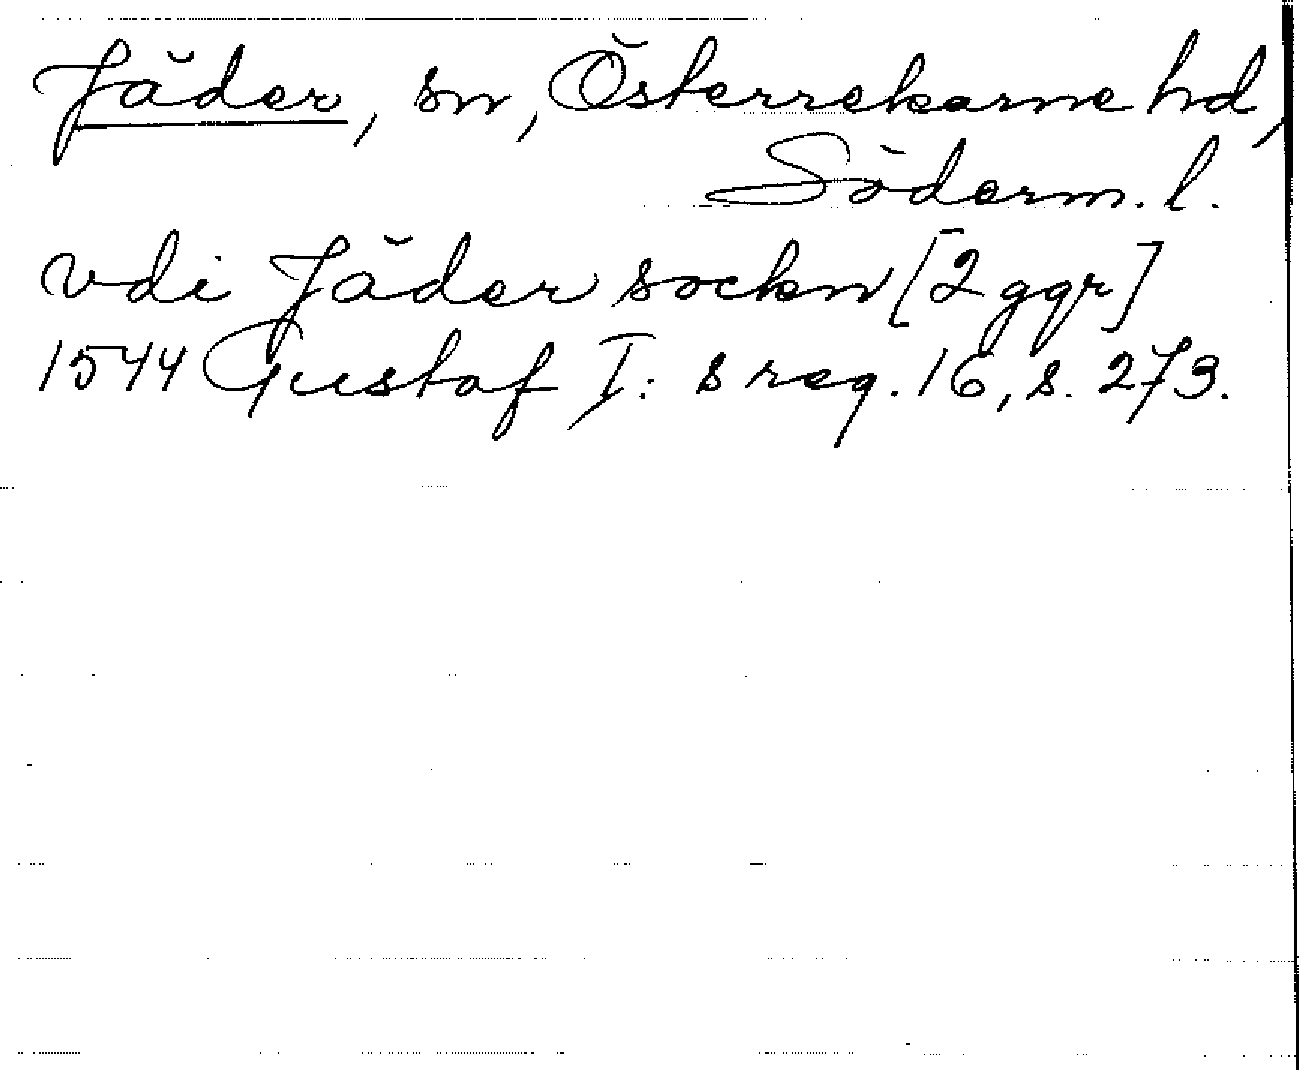 Jäder, sn, Österrekarne hd,
Söderm. l.
vdi Jäder sockn [2 ggr]
1544 Gustaf I: s reg. 16, s. 273.